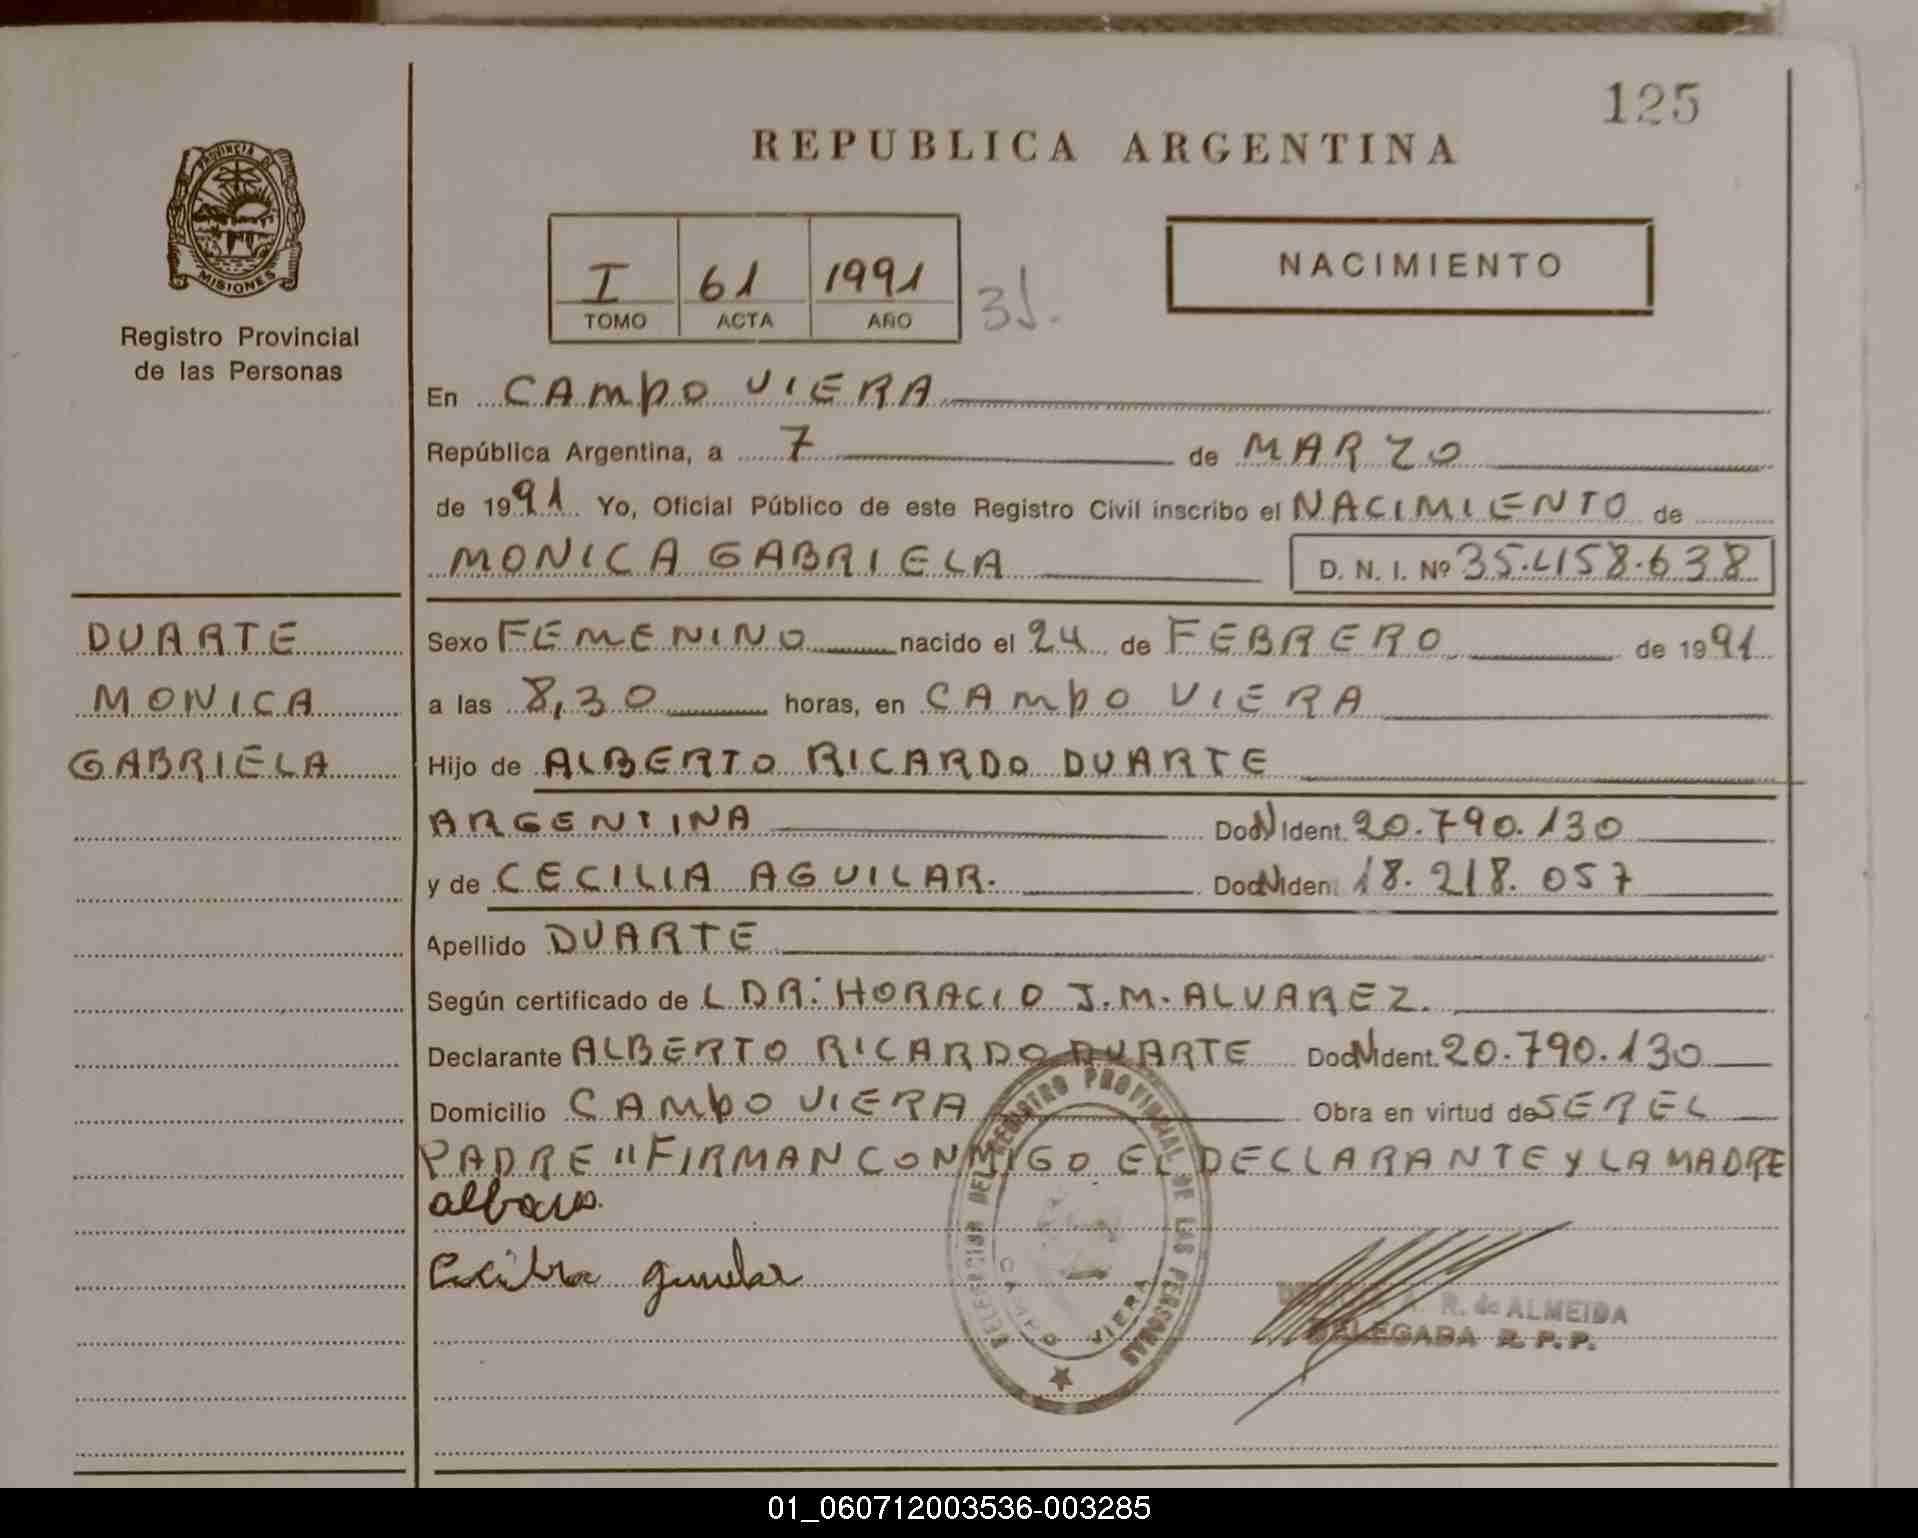 125
REPUBLICA ARGENTINA
PROVINCIA DE
MISIONES
Registro Provincial
de las Personas
I 61 1991
TOMO ACTA AÑO
NACIMIENTO
En CAMPO VIERA
República Argentina, a 7 de MARZO
de 1991 Yo, Oficial Público de este Registro Civil inscribo el NACIMIENTO de
MONICA GABRIELA D. N. I. Nº 35.458.638
DUARTE
MONICA
GABRIELA
Sexo FEMENINO nacido el 24 de FEBRERO de 1991
a las 8,30 horas, en CAMPO VIERA
Hijo de ALBERTO RICARDO DUARTE
ARGENTINA Doc N Ident. 20.790.130
y de CECILIA AGUILAR. Doc N Iden 18.218.057
Apellido DUARTE
Según certificado de L DR: HORACIO J.M. ALVAREZ.
Declarante ALBERTO RICARDO DUARTE Doc N Ident. 20.790.130
Domicilio CAMPO VIERA Obra en virtud de SER EL
PADRE "FIRMAN CONMIGO EL DECLARANTE Y LA MADRE
DELEGACION DEL REGISTRO PROVINCIAL DE LAS PERSONAS
CAMPO VIERA
R. de ALMEIDA
DELEGADA R. P. P.
01_060712003536-003285